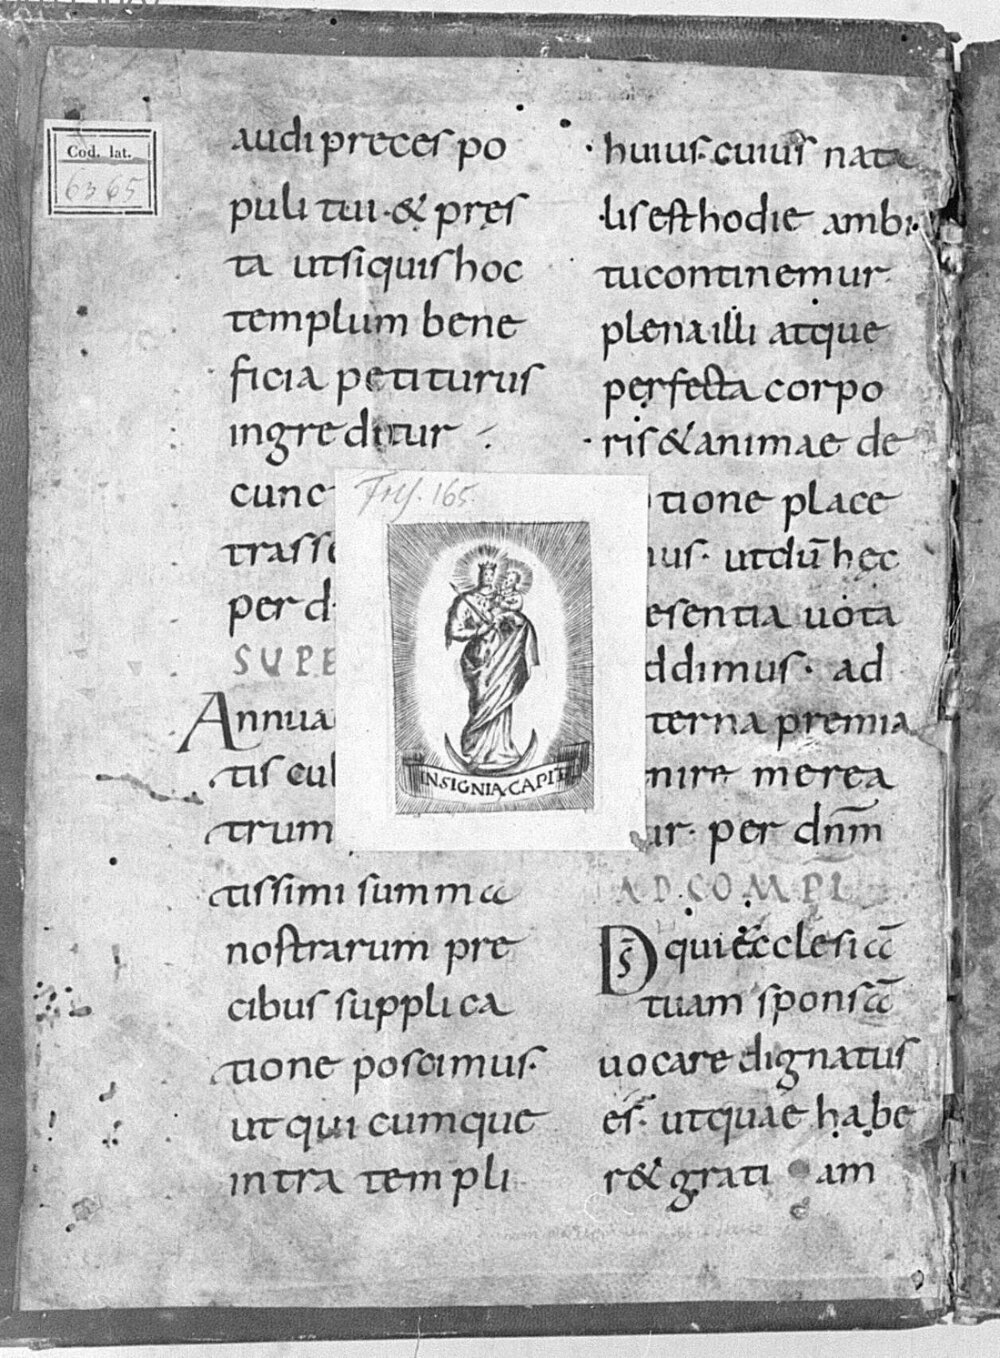 Cod. lat.
6365
audi preces po
puli tui · & pręs
ta ut siquis hoc
templum bene
ficia petiturus
ingreditur
cunc
trasse
per d
SUPE
Annua
tis cul
trum
tissimi summa
nostrarum pre
cibus supplica
tione poscimus·
ut qui cumque
intra templi
huius· cuius nata
lis est hodie ambi
tu continemur·
plena illi atque
perfecta corpo
ris & animae de
tione place
us· ut dū hęc
esentia uota
ddimus· ad
terna premia
nire merea
ur· per dn̄m
AD COMPL̄
D̄s qui ęcclesiā
tuam sponsā
uocare dignatus
es· ut quae habe
r& grati am
Frs. 165.
INSIGNIA CAPIT